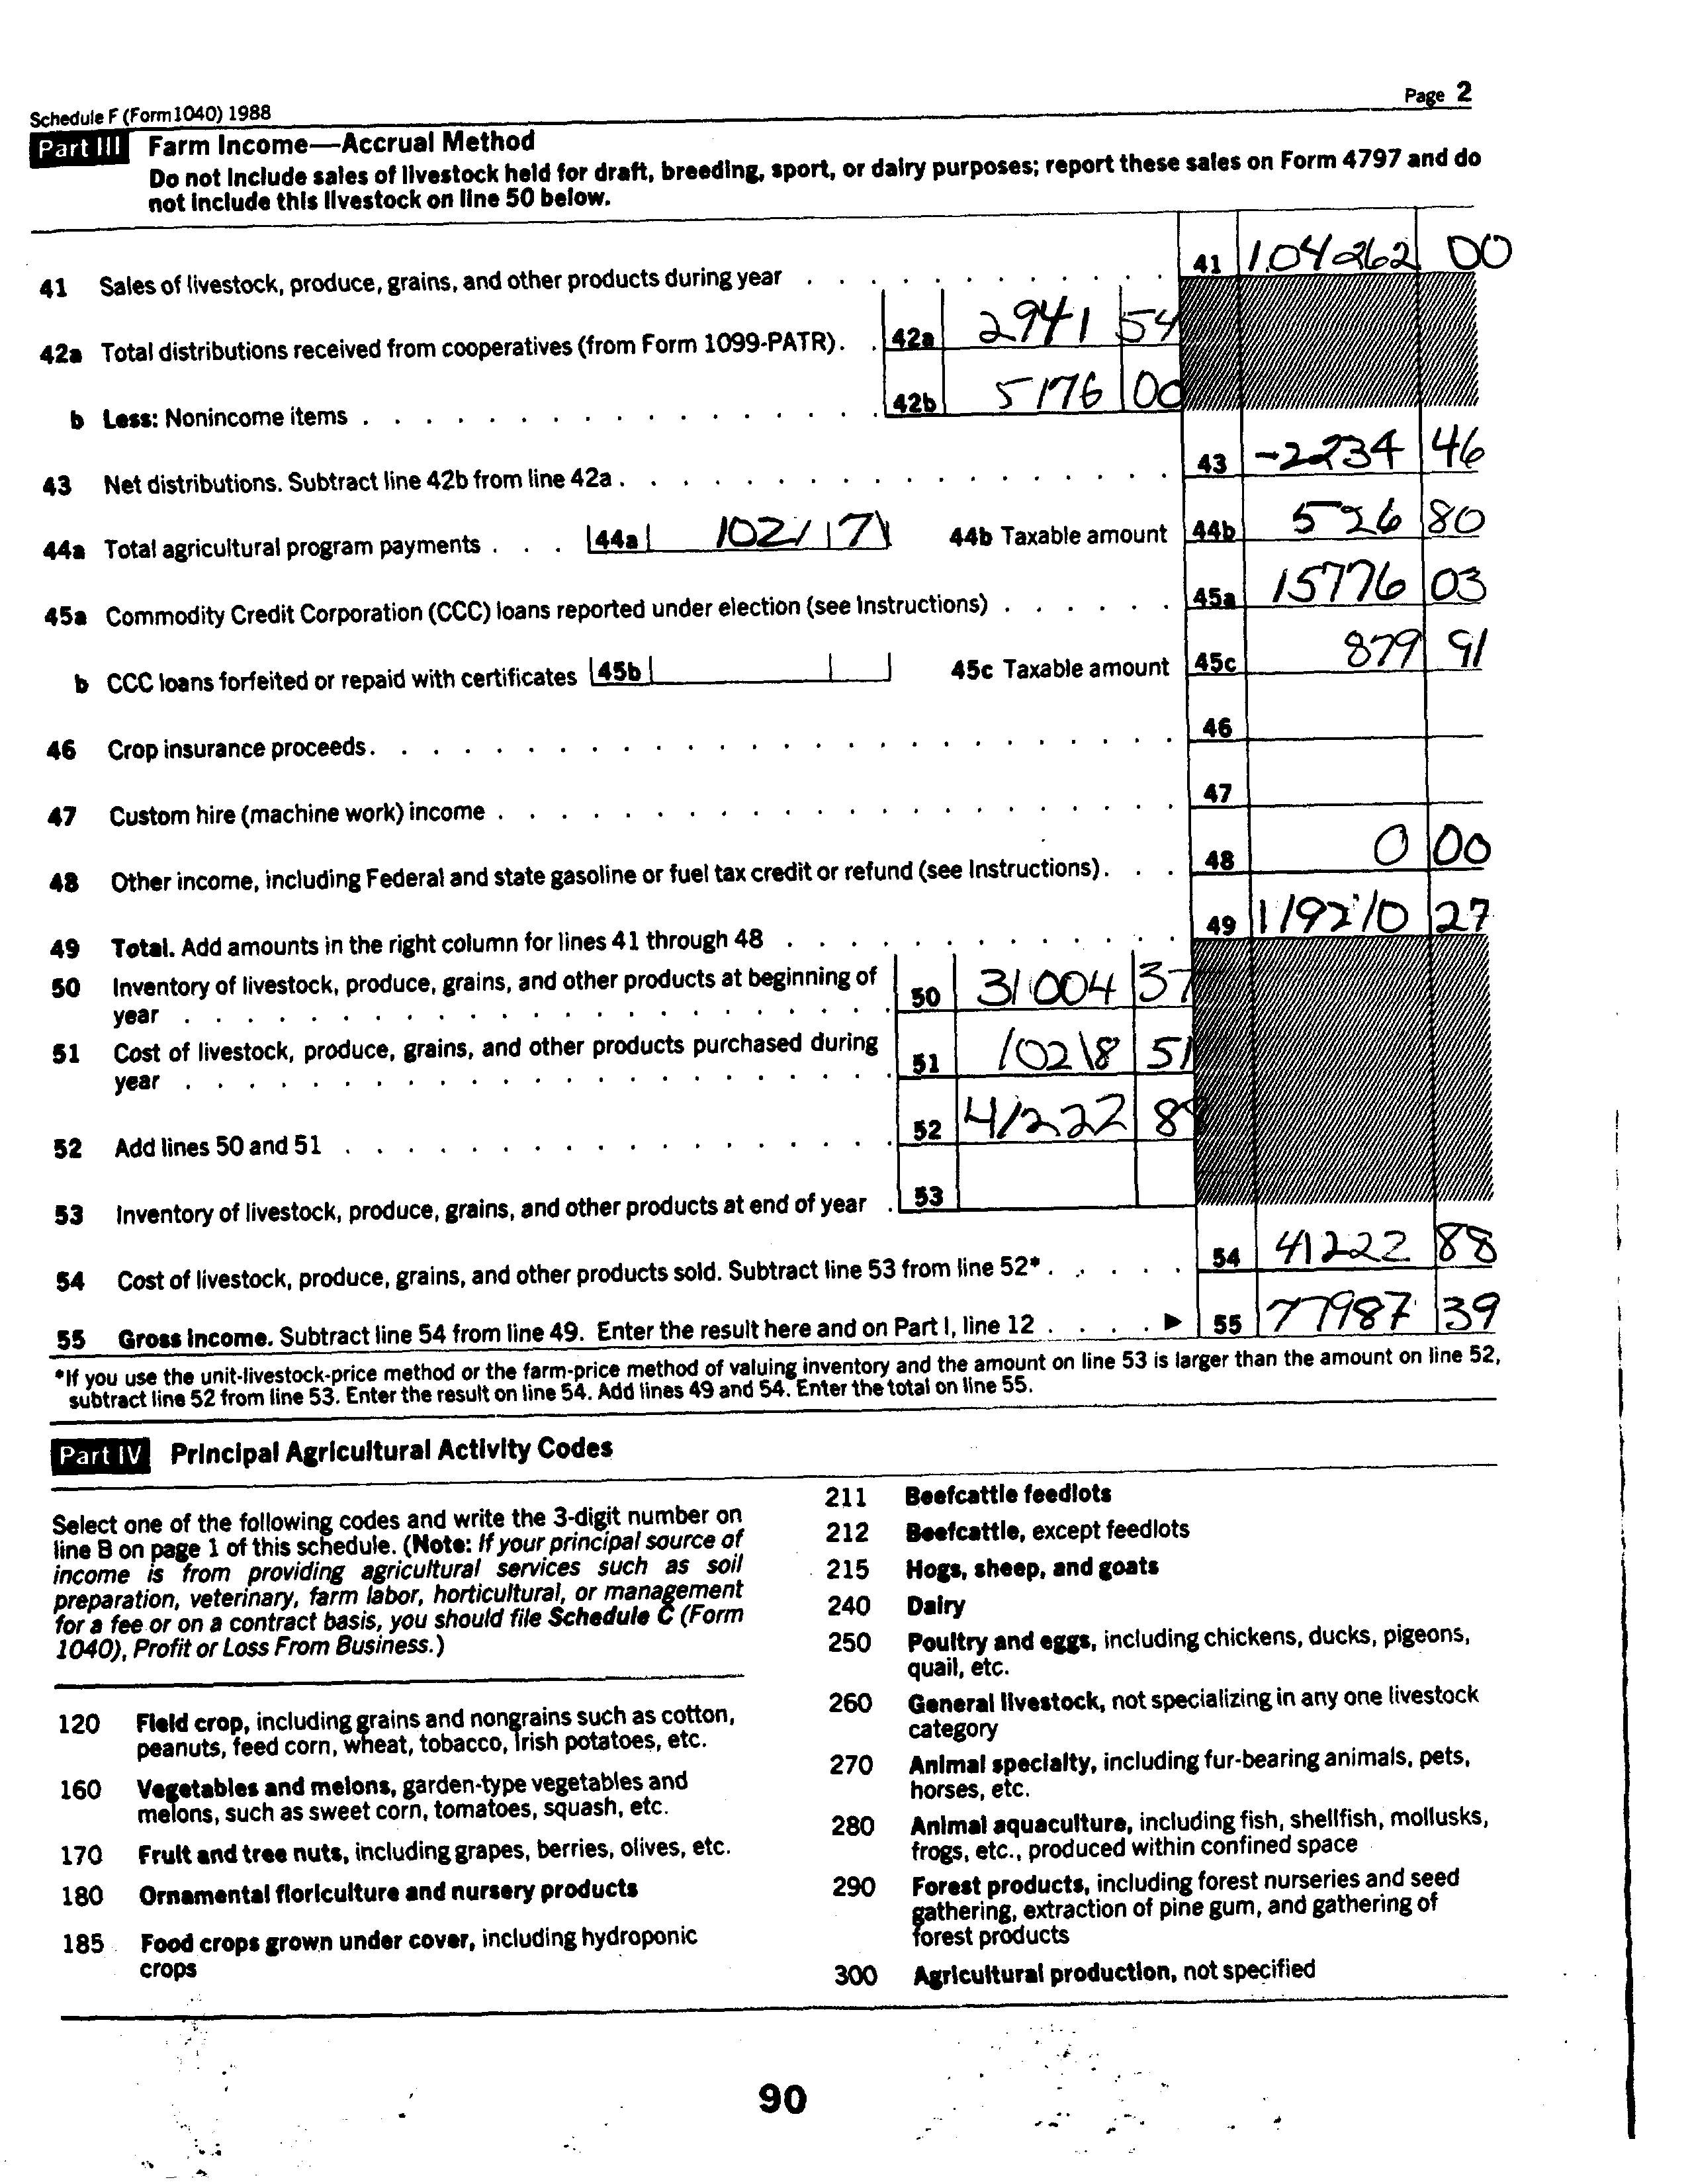 Schedule F (Form 1040) 1988 Page 2
Part III Farm Income—Accrual Method
Do not include sales of livestock held for draft, breeding, sport, or dairy purposes; report these sales on Form 4797 and do
not include this livestock on line 50 below.
41 Sales of livestock, produce, grains, and other products during year . . . . . . . . . . . . 41 104262 00
42a Total distributions received from cooperatives (from Form 1099-PATR) . . 42a 2941 54
b Less: Nonincome items . . . . . . . . . . . . . . . . . 42b 5176 00
43 Net distributions. Subtract line 42b from line 42a . . . . . . . . . . . . . . . . . . 43 -2234 46
44a Total agricultural program payments . . . 44a 1021 71 44b Taxable amount 44b 526 80
45a Commodity Credit Corporation (CCC) loans reported under election (see Instructions) . . . . . . 45a 15776 03
b CCC loans forfeited or repaid with certificates 45b 45c Taxable amount 45c 879 91
46 Crop insurance proceeds . . . . . . . . . . . . . . . . . . . . . . . . . . 46
47 Custom hire (machine work) income . . . . . . . . . . . . . . . . . . . . . . 47
48 Other income, including Federal and state gasoline or fuel tax credit or refund (see Instructions) . . . 48 0 00
49 Total. Add amounts in the right column for lines 41 through 48 . . . . . . . . . . . . . 49 119210 27
50 Inventory of livestock, produce, grains, and other products at beginning of
year . . . . . . . . . . . . . . . . . . . . . . . 50 31004 37
51 Cost of livestock, produce, grains, and other products purchased during
year . . . . . . . . . . . . . . . . . . . . . . . 51 10218 51
52 Add lines 50 and 51 . . . . . . . . . . . . . . . . . . 52 41222 88
53 Inventory of livestock, produce, grains, and other products at end of year . 53
54 Cost of livestock, produce, grains, and other products sold. Subtract line 53 from line 52* . . . . . 54 41222 88
55 Gross income. Subtract line 54 from line 49. Enter the result here and on Part I, line 12 . . . . ▶ 55 77987 39
*If you use the unit-livestock-price method or the farm-price method of valuing inventory and the amount on line 53 is larger than the amount on line 52,
subtract line 52 from line 53. Enter the result on line 54. Add lines 49 and 54. Enter the total on line 55.
Part IV Principal Agricultural Activity Codes
Select one of the following codes and write the 3-digit number on
line B on page 1 of this schedule. (Note: If your principal source of
income is from providing agricultural services such as soil
preparation, veterinary, farm labor, horticultural, or management
for a fee or on a contract basis, you should file Schedule C (Form
1040), Profit or Loss From Business.)
120 Field crop, including grains and nongrains such as cotton,
peanuts, feed corn, wheat, tobacco, Irish potatoes, etc.
160 Vegetables and melons, garden-type vegetables and
melons, such as sweet corn, tomatoes, squash, etc.
170 Fruit and tree nuts, including grapes, berries, olives, etc.
180 Ornamental floriculture and nursery products
185 Food crops grown under cover, including hydroponic
crops
211 Beefcattle feedlots
212 Beefcattle, except feedlots
215 Hogs, sheep, and goats
240 Dairy
250 Poultry and eggs, including chickens, ducks, pigeons,
quail, etc.
260 General livestock, not specializing in any one livestock
category
270 Animal specialty, including fur-bearing animals, pets,
horses, etc.
280 Animal aquaculture, including fish, shellfish, mollusks,
frogs, etc., produced within confined space
290 Forest products, including forest nurseries and seed
gathering, extraction of pine gum, and gathering of
forest products
300 Agricultural production, not specified
90